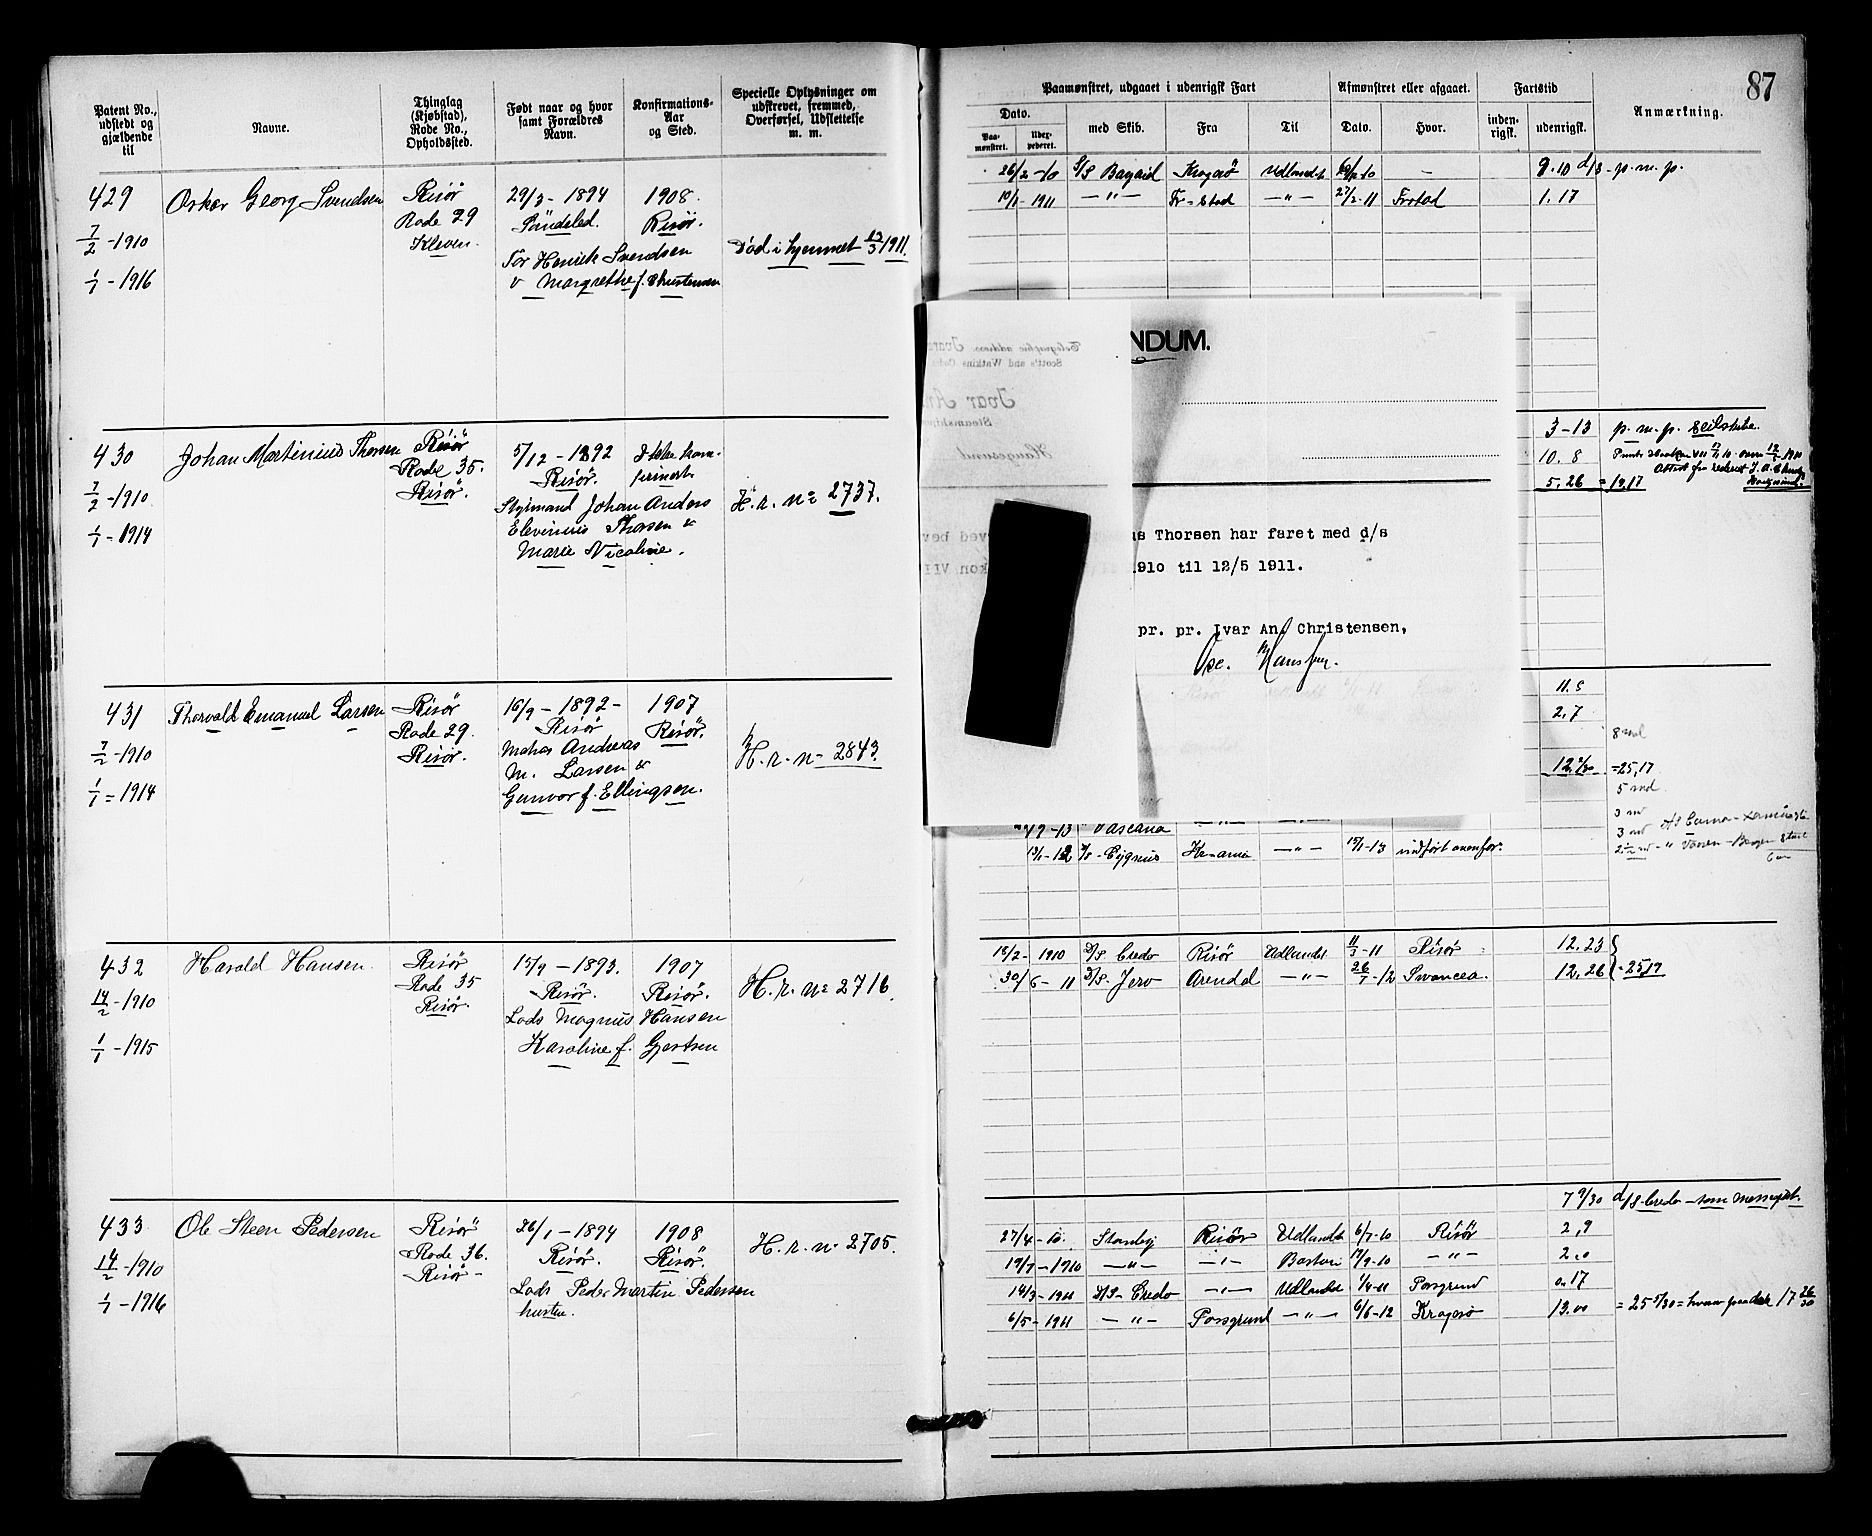 87
Patent No., udstedt og gjældende til
Navne.
Thinglag (Kjøbstad), Rode No., Opholdssted.
Født naar og hvor samt Forældres Navn.
Konfirmations-Aar og Sted.
Specielle Oplysninger om udskrevet, fremmed, Overførsel, Udslettelse m. m.
Paamønstret, udgaaet i udenrigsk Fart
Afmønstret eller afgaaet.
Fartstid
Anmærkning.
Dato.
med Skib.
Fra
Til
Dato.
Hvor.
inden-rigsk.
udenrigsk.
Paa-mønstret.
429
7/2 - 1910
1/1 - 1916
Oskar Georg Svendsen
Risör
Rode 29
Kleven.
29/3 - 1894
Söndeled.
Tor Henrik Svendsen
v Margrethe f. Christensen
1908.
Risör.
Död i hjemmet 13/3 1911.
26/2 -10 S/S Bagaid Kragerö Udlandet - 9.10 d/s - p. m. p.
10/1 - 1911 - " - Fr-stad - " - 27/2-11 Frstad 1.17
430
7/2 - 1910
1/1 - 1914
Johan Martinius Thorsen
Risör
Rode 35.
Risör.
5/12 - 1892
Risör.
Styrmand Johan Anders
Elevinius Thorsen &
Marie Nicoline.
Ikke kon-
firmert
H. r. no 2737.
3-13 p. m. p. Seilskibe.
10. 8
5. 26 = 19.17
NDUM.
Ivar An
Haugesund
us Thorsen har faret med d/s
1910 til 12/5 1911.
pr. pr. Ivar An. Christensen,
431
7/2 - 1910
1/1 = 1914
Thorvald Emanuel Larsen
Risör
Rode 29.
Risör.
16/9 - 1892 -
Risör
Andreas
M. Larsen &
Gunvor f. Ellingsen.
1907
Risör.
H. r. n - 2843.
11. 5
2. 7
8 md
= 25,17
5 md.
3 md
3 md
- 13 - " -
13/1 - 12 S/S - Cygnus Kr-ania - " - 15/1-13 indfört ovenfor.
432
14/2 - 1910
1/1 - 1915
Harald Hansen.
Risör
Rode 35
Risör.
15/9 - 1893.
Risör.
Lods Magnus Hansen
Karoline f. Gjertsen
1907
Risör.
H. r. no 2716.
15/2 - 1910 D/S Credo Risör Udlandet 11/3 - 11 Risör 12. 23
30/6 - 11 D/S. Jerv Arendal - " - 26/7 - 12 Swancea. 12. 26 = 25 19
433
14/2 - 1910
1/1 - 1916
Ole Steen Pedersen
Risör
Rode 36.
Risör -
26/1 - 1894
Risör.
Lods Peder Martin Pedersen
hustru.
1908
Risör.
H. r. no 2705.
7 9/30 d/s Credo - som messegut.
27/4 - 10. Stanley Risör Udlandet 6/7-10 Risör 2, 9
19/7 - 1910 - " - - " - 17/9-10 - " - 2. 0
14/3 - 1911 D/S - Credo - " - Udlandet 1/4-11 Porsgrund 0. 17
6/5 - 1911 - " - Porsgrund - " - 6/6-12 Kragerö 13.00 = 25 5/30 = hvoraf 17 26/30